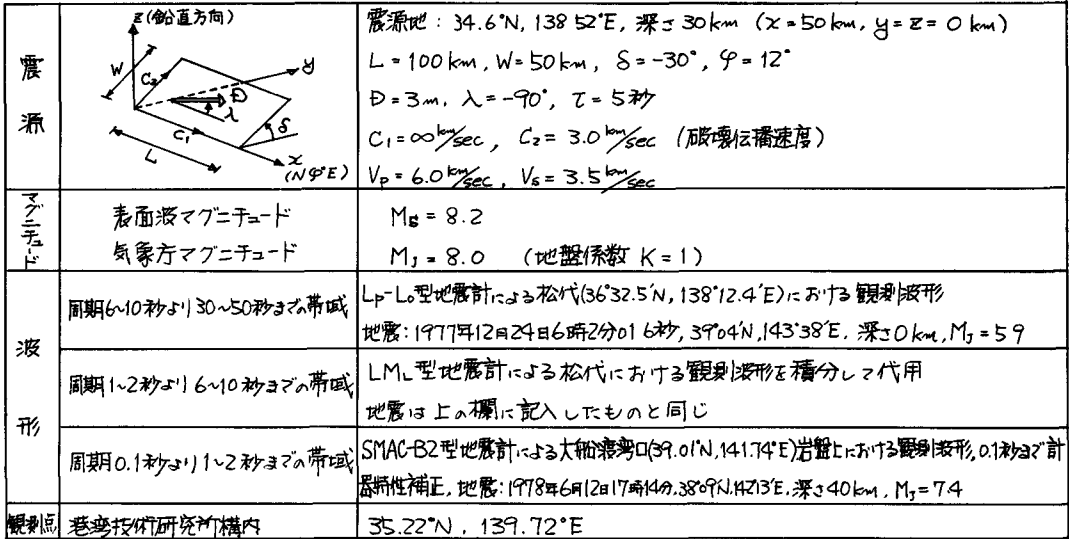 震源
z(鉛直方向)
W
C₂
y
D
λ
δ
C₁
L
x
(NφE)
震源地: 34.6°N, 138 52°E, 深さ30km (x=50km, y=z=0km)
L=100km, W=50km, δ=-30°, φ=12°
D=3m, λ=-90°, τ=5秒
C₁=∞km/sec, C₂=3.0km/sec (破壊伝播速度)
Vp=6.0km/sec, Vs=3.5km/sec
マグニチュード
表面波マグニチュード
Ms=8.2
気象庁マグニチュード
MJ=8.0 (地盤係数 K=1)
波形
周期6~10秒より30~50秒までの帯域
Lp-Lo型地震計による松代(36°32.5'N, 138°12.4'E)における観測波形
地震:1977年12月24日6時2分01 6秒, 39°04'N, 143°38'E, 深さ0km, MJ=5 9
周期1~2秒より6~10秒までの帯域
LML型地震計による松代における観測波形を積分して代用
地震は上の欄に記入したものと同じ
周期0.1秒より1~2秒までの帯域
SMAC-B2型地震計による大船渡湾口(39.01°N, 141.74°E)岩盤上における観測波形, 0.1秒まで計
器特性補正, 地震:1978年6月12日17時14分, 38°09'N, 142°13'E, 深さ40km, MJ=7.4
観測点
港湾技術研究所構内
35.22°N, 139.72°E